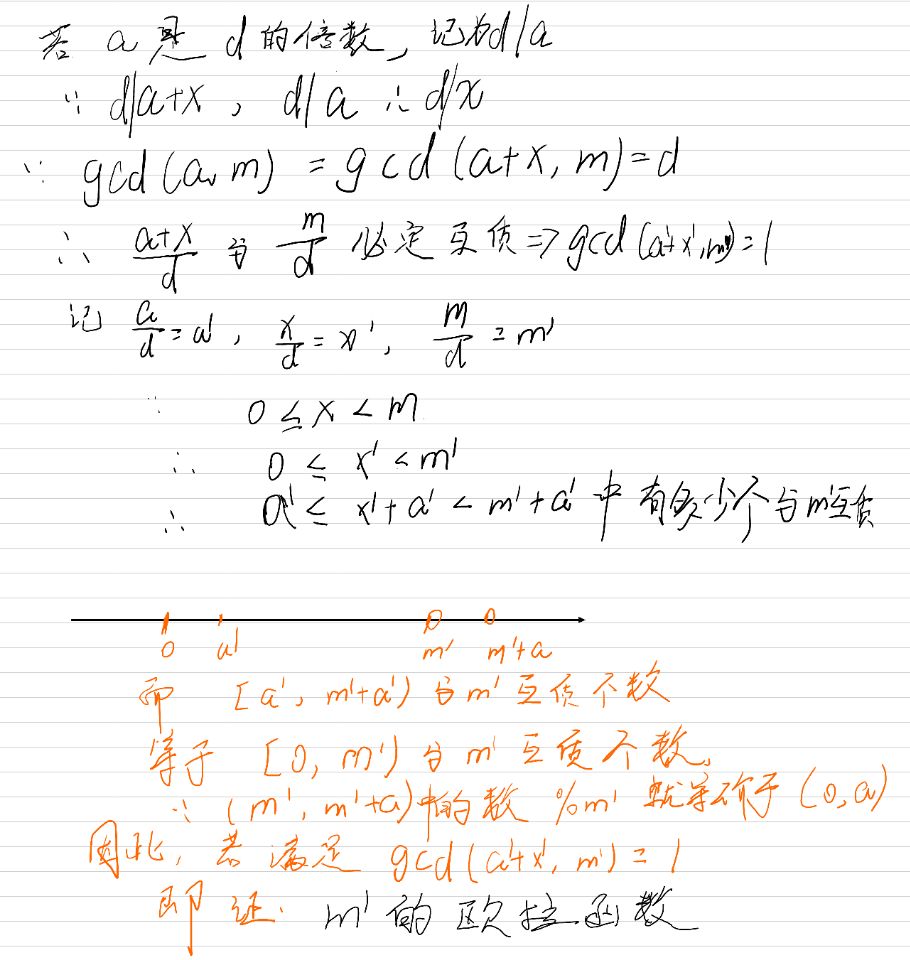 若 a 是 d 的倍数, 记为d|a
∵ d|a+x, d|a ∴ d|x
∵ gcd(a, m) = gcd(a+x, m) = d
∴ (a+x)/d 与 m/d 必定互质 ⇒ gcd(a'+x', m') = 1
记 a/d = a', x/d = x', m/d = m'
∵ 0 ≤ x < m
∴ 0 ≤ x' < m'
∴ a' ≤ x'+a' < m'+a' 中有多少个与m'互质
0 a' m' m'+a
而 [a', m'+a') 与 m' 互质个数
等于 [0, m') 与 m' 互质个数,
∵ (m', m'+a) 中的数 %m' 就等价于 (0, a)
因此, 若满足 gcd(a'+x', m') = 1
即证. m' 的欧拉函数